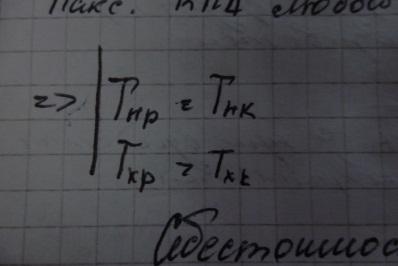 Макс. КПД любого
=> | Tнр = Tнк
Tхр = Tхк
Себестоимос